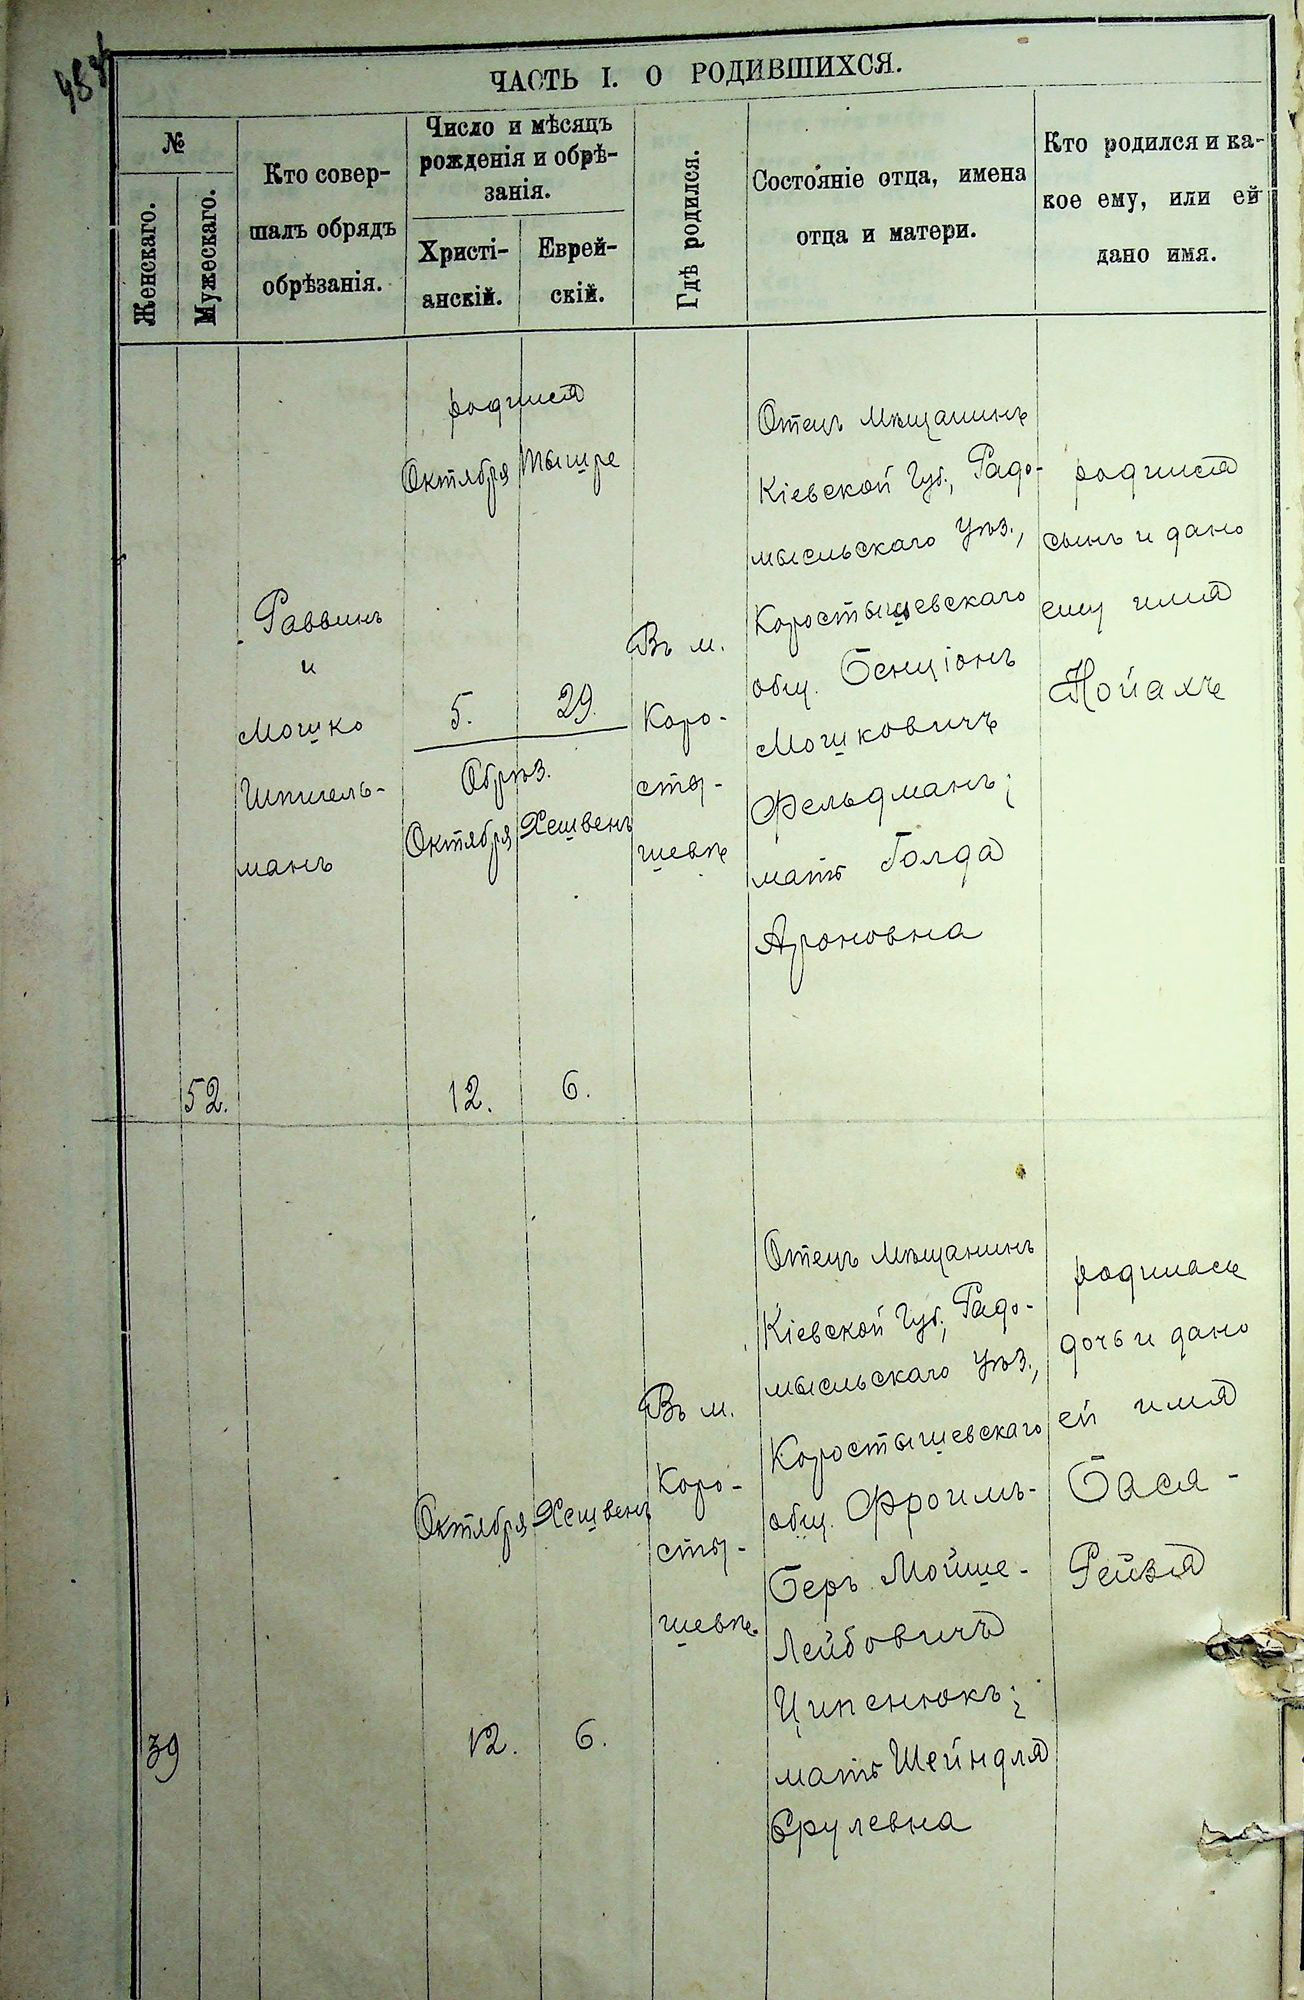 ЧАСТЬ I. О РОДИВШИХСЯ.
№
Женскаго.
Мужескаго.
Кто совер-
шалъ обрядъ
обрѣзанія.
Число и мѣсяцъ
рожденія и обрѣ-
занія.
Христі-
анскій.
Еврей-
скій.
Гдѣ родился.
Состояніе отца, имена
отца и матери.
Кто родился и ка-
кое ему, или ей
дано имя.
52.
Раввинъ
и
Мошко
Шпигель-
манъ
родился
Октября Тышре
5. 29.
Обрѣз.
Октября Хешвенъ
12. 6.
Въ м.
Коро-
сты-
шевѣ
Отецъ мѣщанинъ
Кіевской Губ., Радо-
мысльскаго Уѣз.,
Коростышевскаго
общ. Бенціонъ
Мошковичъ
Фельдманъ;
мать Голда
Ароновна
родился
сынъ и дано
ему имя
Нойахъ
39
Октября Хешвенъ
12. 6.
Въ м.
Коро-
сты-
шевѣ.
Отецъ мѣщанинъ
Кіевской Губ., Радо-
мысльскаго Уѣз.,
Коростышевскаго
общ. Фроимъ-
Беръ Мойше-
Лейбовичъ
Ципенюкъ;
мать Шейндля
Срулевна
родилась
дочь и дано
ей имя
Бася-
Рейзя